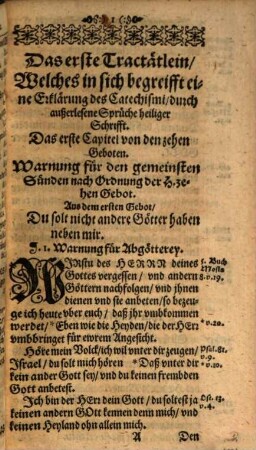 1
Das erste Tractätlein/
Welches in sich begreifft ei-
ne Erklärung des Catechismi/durch
außerlesene Sprüche heiliger
Schrifft.
Das erste Capitel von den zehen
Geboten.
Warnung für den gemeinsten
Sünden nach Ordnung der H. ze-
hen Gebot.
Aus dem ersten Gebot/
Du solt nicht andere Götter haben
neben mir.
J. 1. Warnung für Abgötterey.
WIrstu des HERRN deines
Gottes vergessen/ vnd andern
Göttern nachfolgen/ vnd jhnen
dienen vnd sie anbeten/so bezeu-
ge ich heute vber euch/ daß jhr vmbkommen
werdet/ * Eben wie die Heyden/die der HErr
vmbbringet für ewrem Angesicht.
5. Buch
Mosis
8. v. 19.
* v. 20.
Höre mein Volck/ich wil vnter dir zeugen/
Israel/ du solt mich hören * Daß vnter dir
kein ander Gott sey/ vnd du keinen frembden
Gott anbetest.
Psal. 81.
v. 9.
* v. 10.
Ich bin der HErr dein Gott/ du soltest ja
keinen andern GOtt kennen denn mich/ vnd
keinen Heyland ohn allein mich.
Os. 13.
v. 4.
A Den